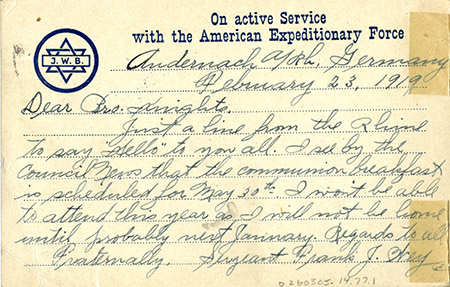 On active Service
with the American Expeditionary Force
J.W.B.
Andernach a/Rh, Germany
February 23, 1919
Dear Bro. Knights.
Just a line from the Rhine
to say "Hello" to you all. I see by the
Council News that the communion breakfast
is scheduled for May 30th. I won't be able
to attend this year as I will not be home
until probably next January. Regards to all
Fraternally, Sergeant Frank J.
0260303.14.77.1